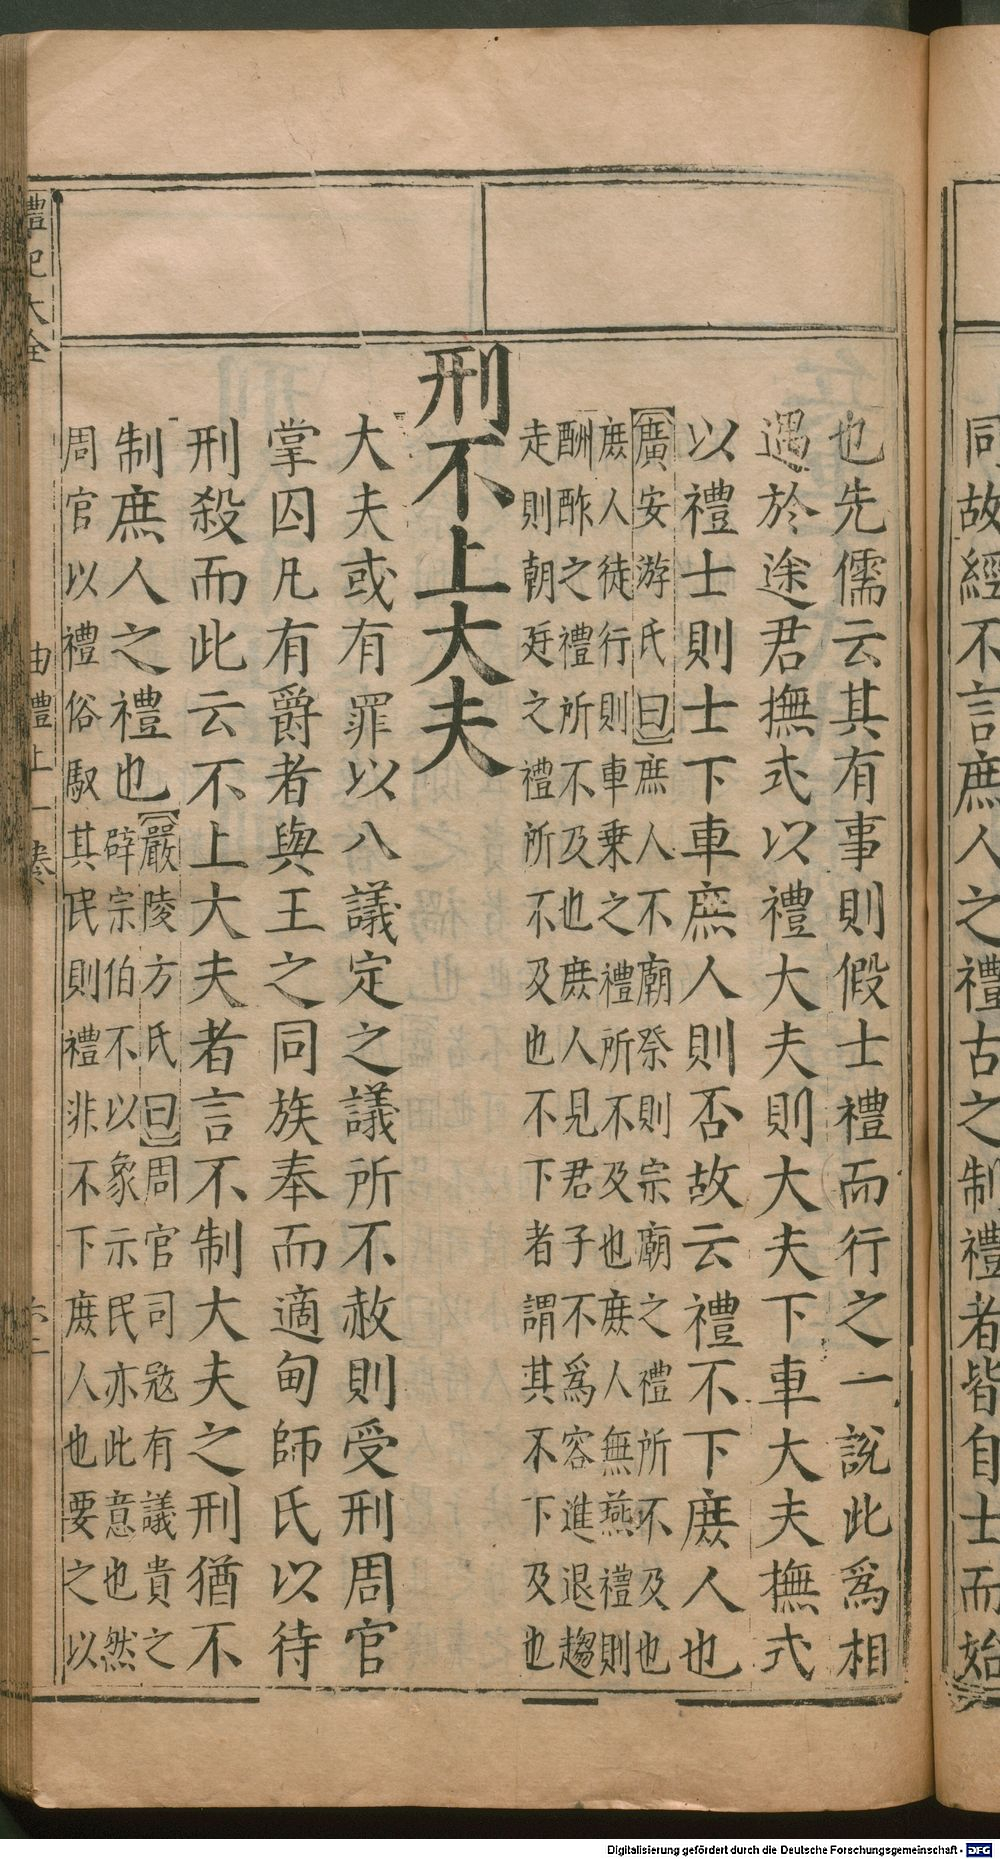 同故經不言庶人之禮古之制禮者皆自士而始
也先儒云其有事則假士禮而行之一說此爲相
遇於途君撫式以禮大夫則大夫下車大夫撫式
以禮士則士下車庶人則否故云禮不下庶人也
【廣安游氏曰】庶人不廟祭則宗廟之禮所不及也
庶人徒行則車乗之禮所不及也庶人無燕禮則
酬酢之禮所不及也庶人見君子不爲容進退趨
走則朝廷之禮所不及也不下者謂其不下及也
刑不上大夫
大夫或有罪以八議定之議所不赦則受刑周官
掌囚凡有爵者與王之同族奉而適甸師氏以待
刑殺而此云不上大夫者言不制大夫之刑猶不
制庶人之禮也【嚴陵方氏曰】周官司宼有議貴之
辟宗伯不以象示民亦此意也然
周官以禮俗馭其民則禮非不下庶人也要之以
禮記大全
曲禮上一卷
Digitalisierung gefördert durch die Deutsche Forschungsgemeinschaft - DFG